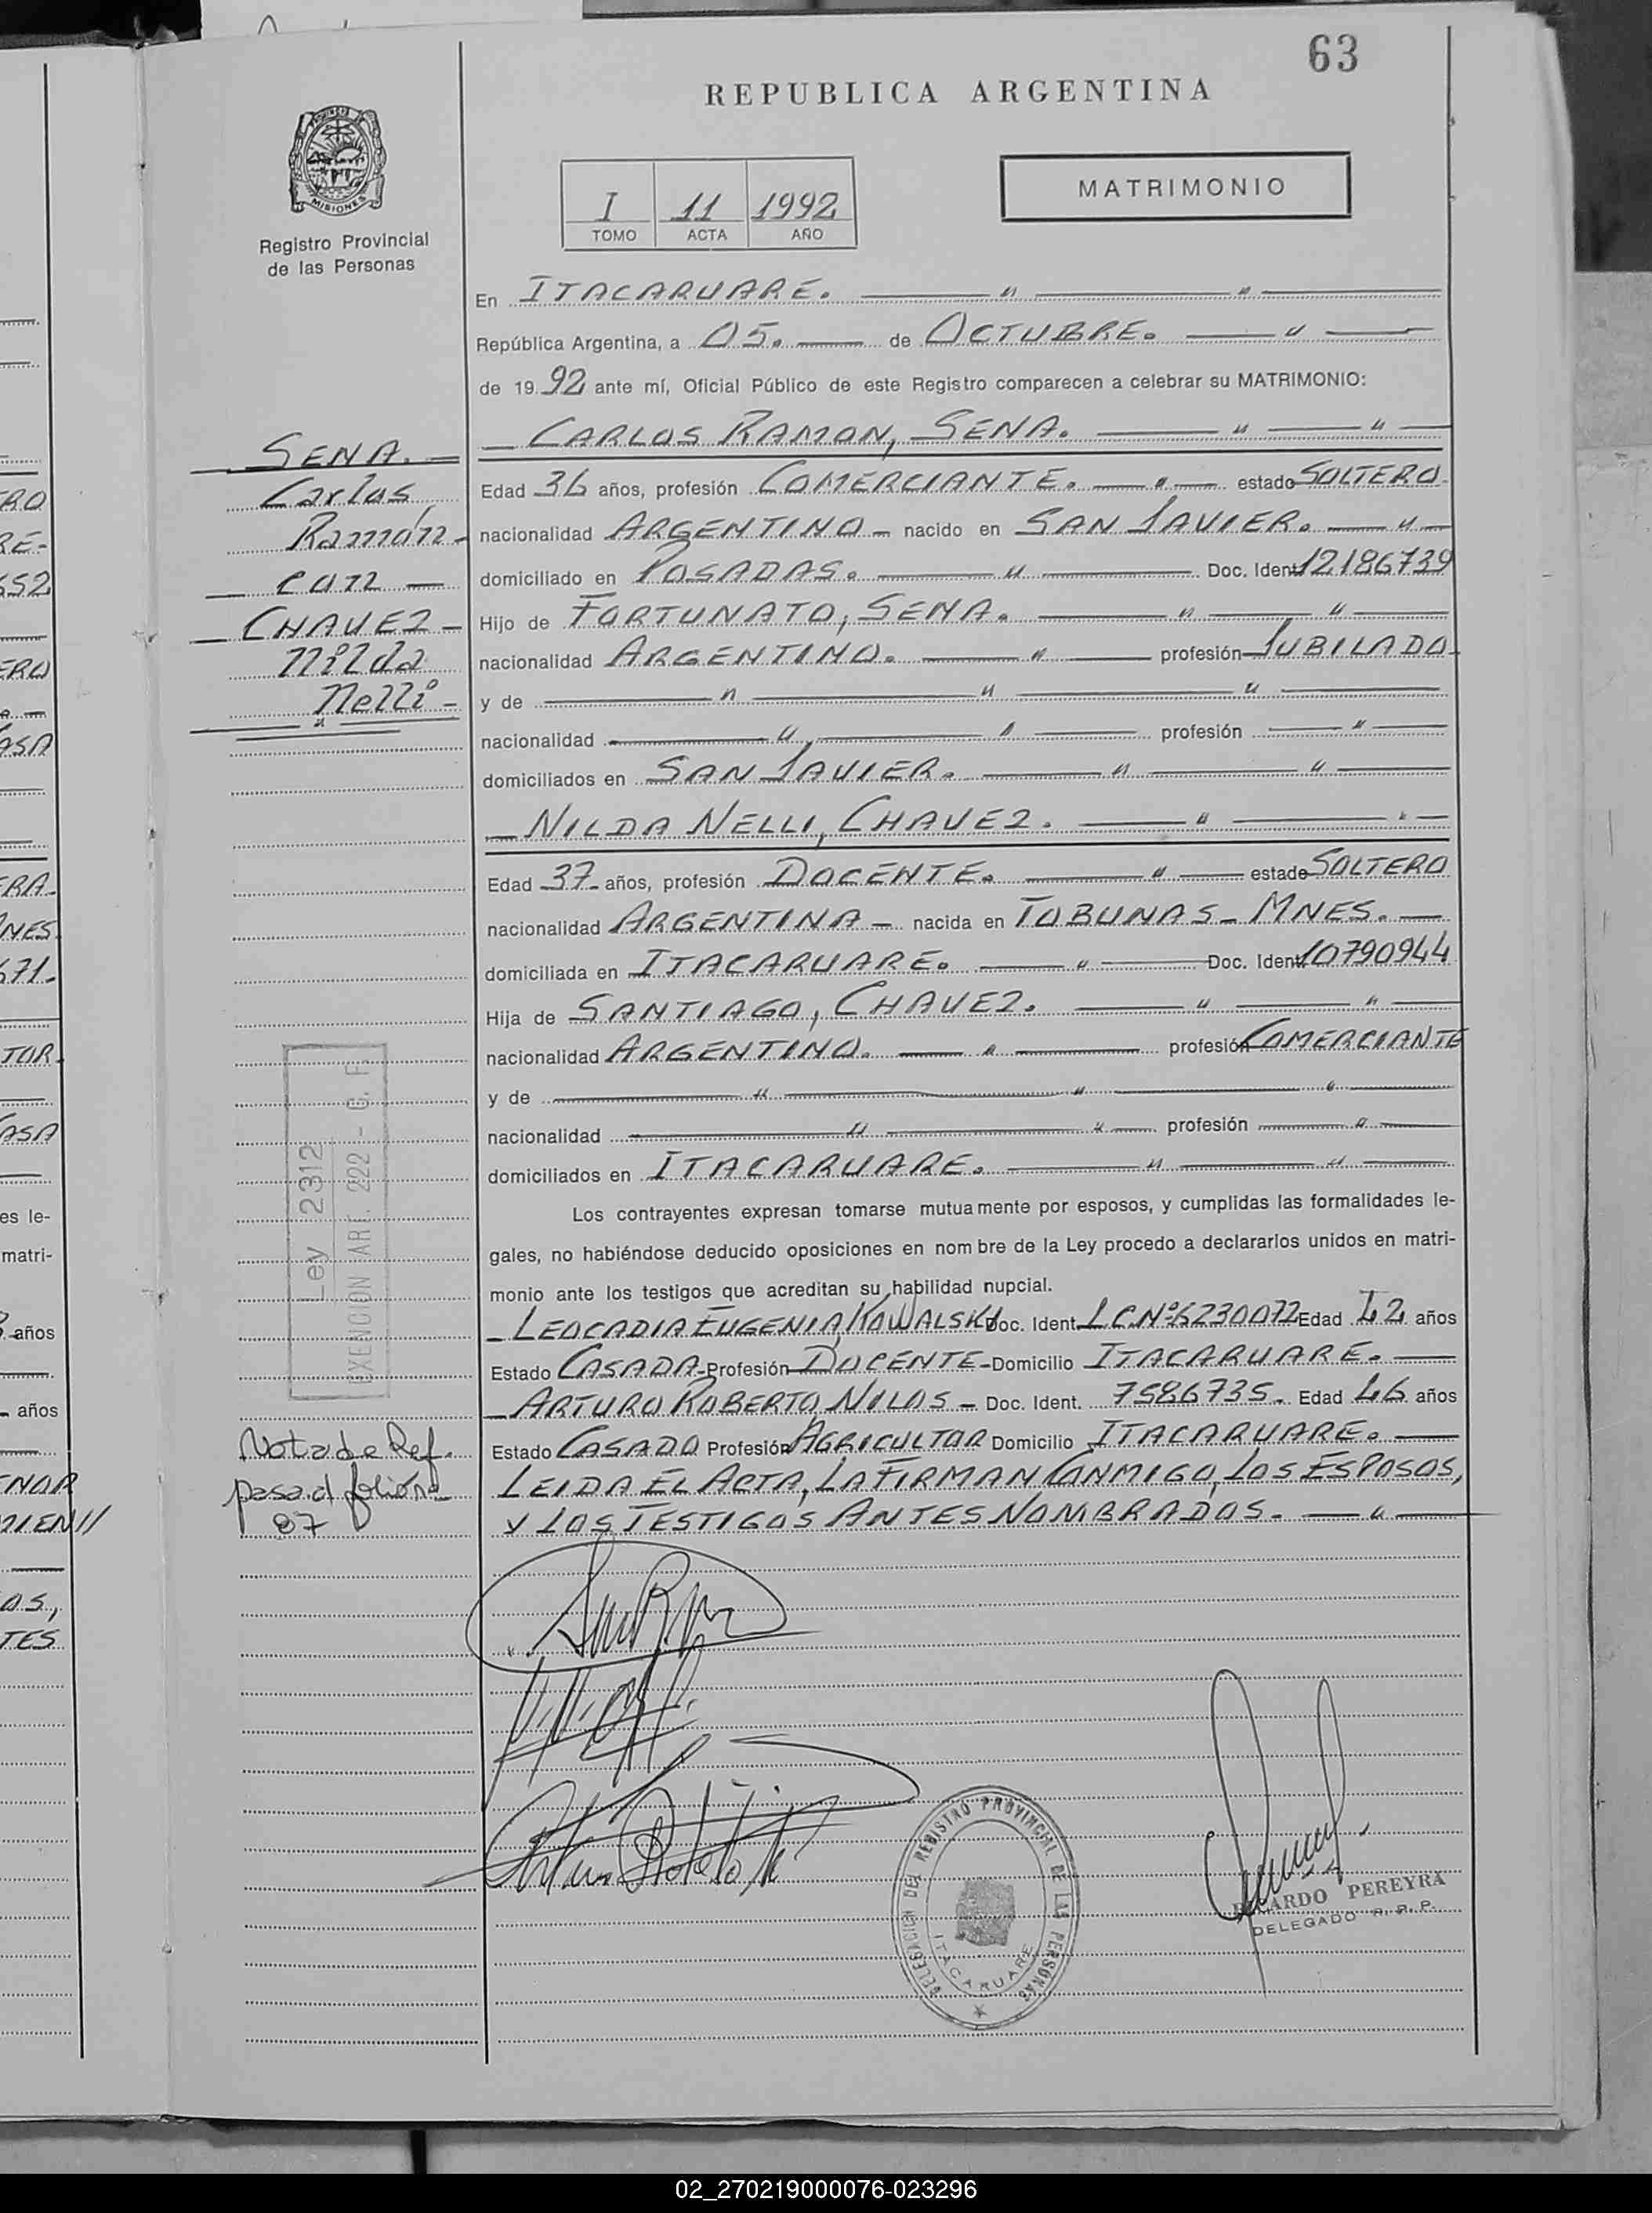 63
REPUBLICA ARGENTINA
MISIONES
Registro Provincial
de las Personas
I 11 1992
TOMO ACTA AÑO
MATRIMONIO
En ITACARUARE.
República Argentina, a 05. de OCTUBRE.
de 1992 ante mí, Oficial Público de este Registro comparecen a celebrar su MATRIMONIO:
CARLOS RAMON, SENA.
Edad 36 años, profesión COMERCIANTE. estado SOLTERO.
nacionalidad ARGENTINO - nacido en SAN JAVIER.
domiciliado en POSADAS. Doc. Ident. 12186739
Hijo de FORTUNATO, SENA.
nacionalidad ARGENTINO. profesión JUBILADO.
y de
nacionalidad profesión
domiciliados en SAN JAVIER.
NILDA NELLI, CHAVEZ.
Edad 37 años, profesión DOCENTE. estado SOLTERO
nacionalidad ARGENTINA - nacida en TOBUNAS - MNES.
domiciliada en ITACARUARE. Doc. Ident. 10790944
Hija de SANTIAGO, CHAVEZ.
nacionalidad ARGENTINO. profesión COMERCIANTE
y de
nacionalidad profesión
domiciliados en ITACARUARE.
Los contrayentes expresan tomarse mutuamente por esposos, y cumplidas las formalidades le-
gales, no habiéndose deducido oposiciones en nombre de la Ley procedo a declararlos unidos en matri-
monio ante los testigos que acreditan su habilidad nupcial.
LEOCADIA EUGENIA, KOWALSKI Doc. Ident. LC.Nº 6230072 Edad 42 años
Estado CASADA - Profesión DOCENTE - Domicilio ITACARUARE.
ARTURO ROBERTO, NILOS - Doc. Ident. 7586735. Edad 46 años
Estado CASADO Profesión AGRICULTOR Domicilio ITACARUARE.
LEIDA EL ACTA, LA FIRMAN CONMIGO, LOS ESPOSOS,
Y LOS TESTIGOS ANTES NOMBRADOS.
SENA.
Carlos
Ramón -
con
CHAVEZ -
Nilda
Nelli -
Ley 2312
EXENCION ART. 222 - C. F.
Nota de Ref.
pasa al folio nº
87
DELEGACION DEL REGISTRO PROVINCIAL DE LAS PERSONAS
ITACARUARE
RICARDO PEREYRA
DELEGADO R. P. P.
02_270219000076-023296